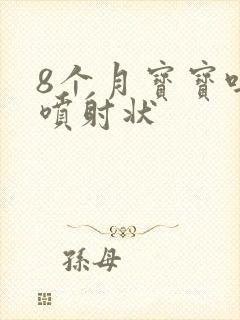 8个月寶寶
噴射状
孫母